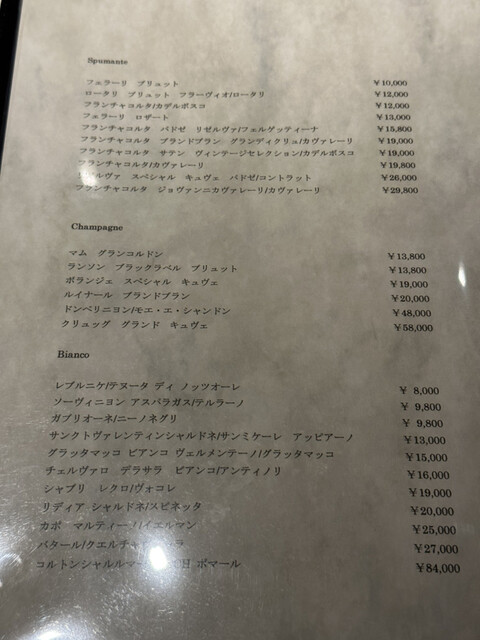 Spumante
フェラーリ ブリュット ￥10,000
ロータリ ブリュット フラーヴィオ/ロータリ ￥12,000
フランチャコルタ/カデルボスコ ￥12,000
フェラーリ ロザート ￥13,000
フランチャコルタ パドゼ リゼルヴァ/フェルゲッティーナ ￥15,800
フランチャコルタ ブランドブラン グランディクリュ/カヴァレーリ ￥19,000
フランチャコルタ サテン ヴィンテージセレクション/カデルボスコ ￥19,000
フランチャコルタ/カヴァレーリ ￥19,800
スペシャル キュヴェ パドゼ/コントラット ￥26,000
フランチャコルタ ジョヴァンニカヴァレーリ/カヴァレーリ ￥29,800
Champagne
マム グランコルドン ￥13,800
ランソン ブラックラベル ブリュット ￥13,800
ボランジェ スペシャル キュヴェ ￥19,000
ルイナール ブランドブラン ￥20,000
ドンペリニヨン/モエ・エ・シャンドン ￥48,000
クリュッグ グランド キュヴェ ￥58,000
Bianco
レブルニケ/テヌータ ディ ノッツオーレ ￥ 8,000
ソーヴィニヨン アスパラガス/テルラーノ ￥ 9,800
ガブリオーネ/ニーノネグリ ￥ 9,800
サンクトヴァレンティンシャルドネ/サンミケーレ アッピアーノ ￥13,000
グラッタマッコ ビアンコ ヴェルメンテーノ/グラッタマッコ ￥15,000
チェルヴァロ デラサラ ビアンコ/アンティノリ ￥16,000
シャブリ レクロ/ヴォコレ ￥19,000
リディア シャルドネ/スピネッタ ￥20,000
カポ マルティーノ/イエルマン ￥25,000
バタール/クエルチャ ￥27,000
コルトンシャルルマー ポマール ￥84,000